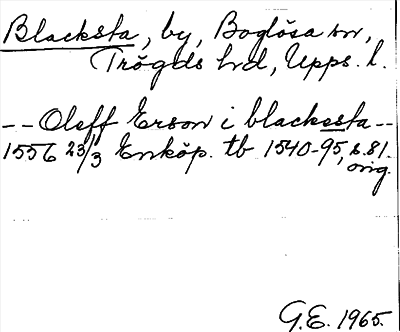 Blacksta, by, Boglösa sn,
Trögds hd, Upps. l.
-- Oleff Erson i blacksta --
1556 23/3 Enköp. tb 1540-95, s. 81.
orig.
G.E. 1965.